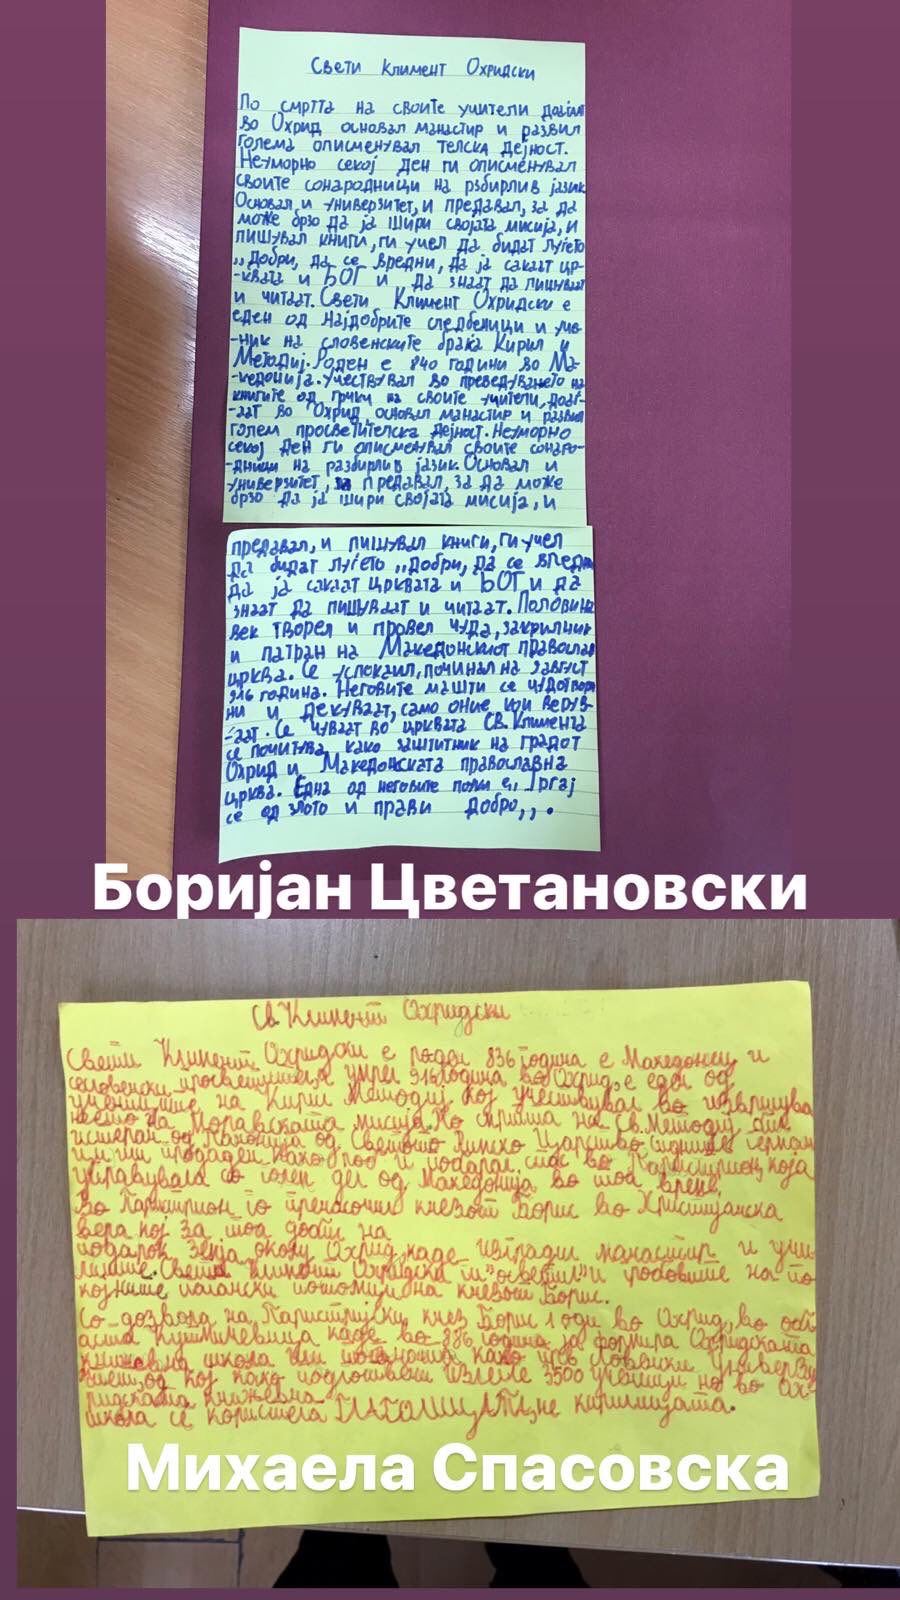 Свети Климент Охридски
По смртта на своите учители доаѓал
во Охрид основал манастир и развил
голема описменувал телска дејност.
Неуморно секој ден ги описменувал
своите сонародници на рзбирлив јазик
Основал и универзитет, и предавал, за да
може брзо да ја шири својата мисија, и
пишувал книги, ги учел да бидат луѓето
,,добри, да се вредни, да ја сакаат цр-
-квата и БОГ и да знаат да пишуваат
и читаат. Свети Климент Охридски е
еден од најдобрите следбеници и уче-
-ник на словенските браќа Кирил и
Методиј. Роден е 840 години во Ма-
-кедонија. Учествувал во преведувањето на
книгите од грчки на своите учители, доаѓ-
-ат во Охрид основал манастир и развил
голем просветителска дејност. Неуморно
секој ден ги описменувал своите сонаро-
-дници на разбирлив јазик. Основал и
универзитет, за предавал, за да може
брзо да ја шири својата мисија, и
предавал, и пишувал книги, ги учел
да бидат луѓето ,,добри, да се вредни
да ја сакаат црквата и БОГ и да
знаат да пишуваат и читаат. Половина
век творел и провел чуда, закрилник
и патран на Македонскиот православ
црква. Се успокаил, починал на 9 август
916 година. Неговите машти се чудотвор
ни и лекуваат, само оние кои верув-
-аат. Се чуваат во црквата Св. Климента
се почитува како заштитник на градот
Охрид и Македонската православна
црква. Една од неговите поуки е,, Тргај
се од злото и прави добро,, .
Боријан Цветановски
Св. Климент Охридски
Свети Климент Охридски е роден 836 година е Македонец и
словенски просветител, умрел 916 година во Охрид, е еден од
учениците на Кирил Методиј кој учествувал во извршува
њето на Моравската мисија. По смртта на Св. Методиј бил
истеран од Панонија од Светото Римско Царство
продаден како роб и во која
управувала со голем дел од Македонија во тоа време.
Во го кнезот Борис во Христијанска
вера кој за тоа доби на
подарок земја околу Охрид, каде изгради манастир и учи
лиште. Свети Климент Охридски ги "осветил" и гробовите на по
којните пагански на кнезот Борис.
Со дозвола на кнез Борис 1 оди во Охрид, во обл
аста Кутмичевица каде во 886 година ја формира Охридската
книжевна школа или како прв Словенски Универзи
тет, од кој како излегле 3500 ученици но во Ох-
ридската книжевна
школа се користела ГЛАГОЛИЦАТА, не кирилицата.
Михаела Спасовска